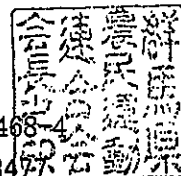 群馬県
農民運動
連合会
会長之印
468-4
3477